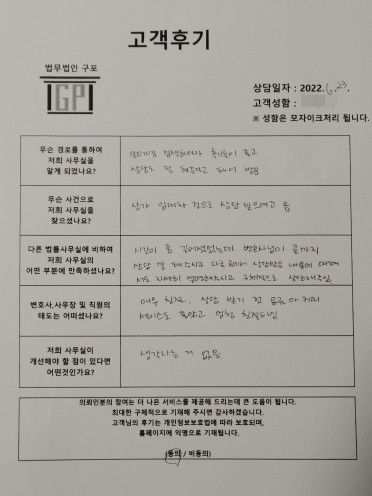 고객후기
법무법인 구포
GP
상담일자 : 2022. 6. 23.
고객성함 :
※ 성함은 모자이크처리 됩니다.
무슨 경로를 통하여
저희 사무실을
알게 되었나요?
후기들이 좋고
상담도 잘
무슨 사건으로
저희 사무실을
찾으셨나요?
상가 임대차 건으로 상담 받으려고 옴
다른 법률사무실에 비하여
저희 사무실의
어떤 부분에 만족하셨나요?
시간이 좀 길어졌었는데 변호사님이 끝까지
상담 잘 해주시고 다른 곳에서 상담받은 내용에 대해
서도 자세히 설명해주시고 구체적으로 상담해주심
변호사,사무장 및 직원의
태도는 어떠셨나요?
매우 친절, 상담 받기 전
서비스도 좋았고 엄청 친절하심
저희 사무실이
개선해야 할 점이 있다면
어떤것인가요?
생각나는 거 없음
의뢰인분의 참여는 더 나은 서비스를 제공해 드리는데 큰 도움이 됩니다.
최대한 구체적으로 기재해 주시면 감사하겠습니다.
고객님의 후기는 개인정보보호법에 따라 보호되며,
홈페이지에 익명으로 기재됩니다.
(동의 / 비동의)